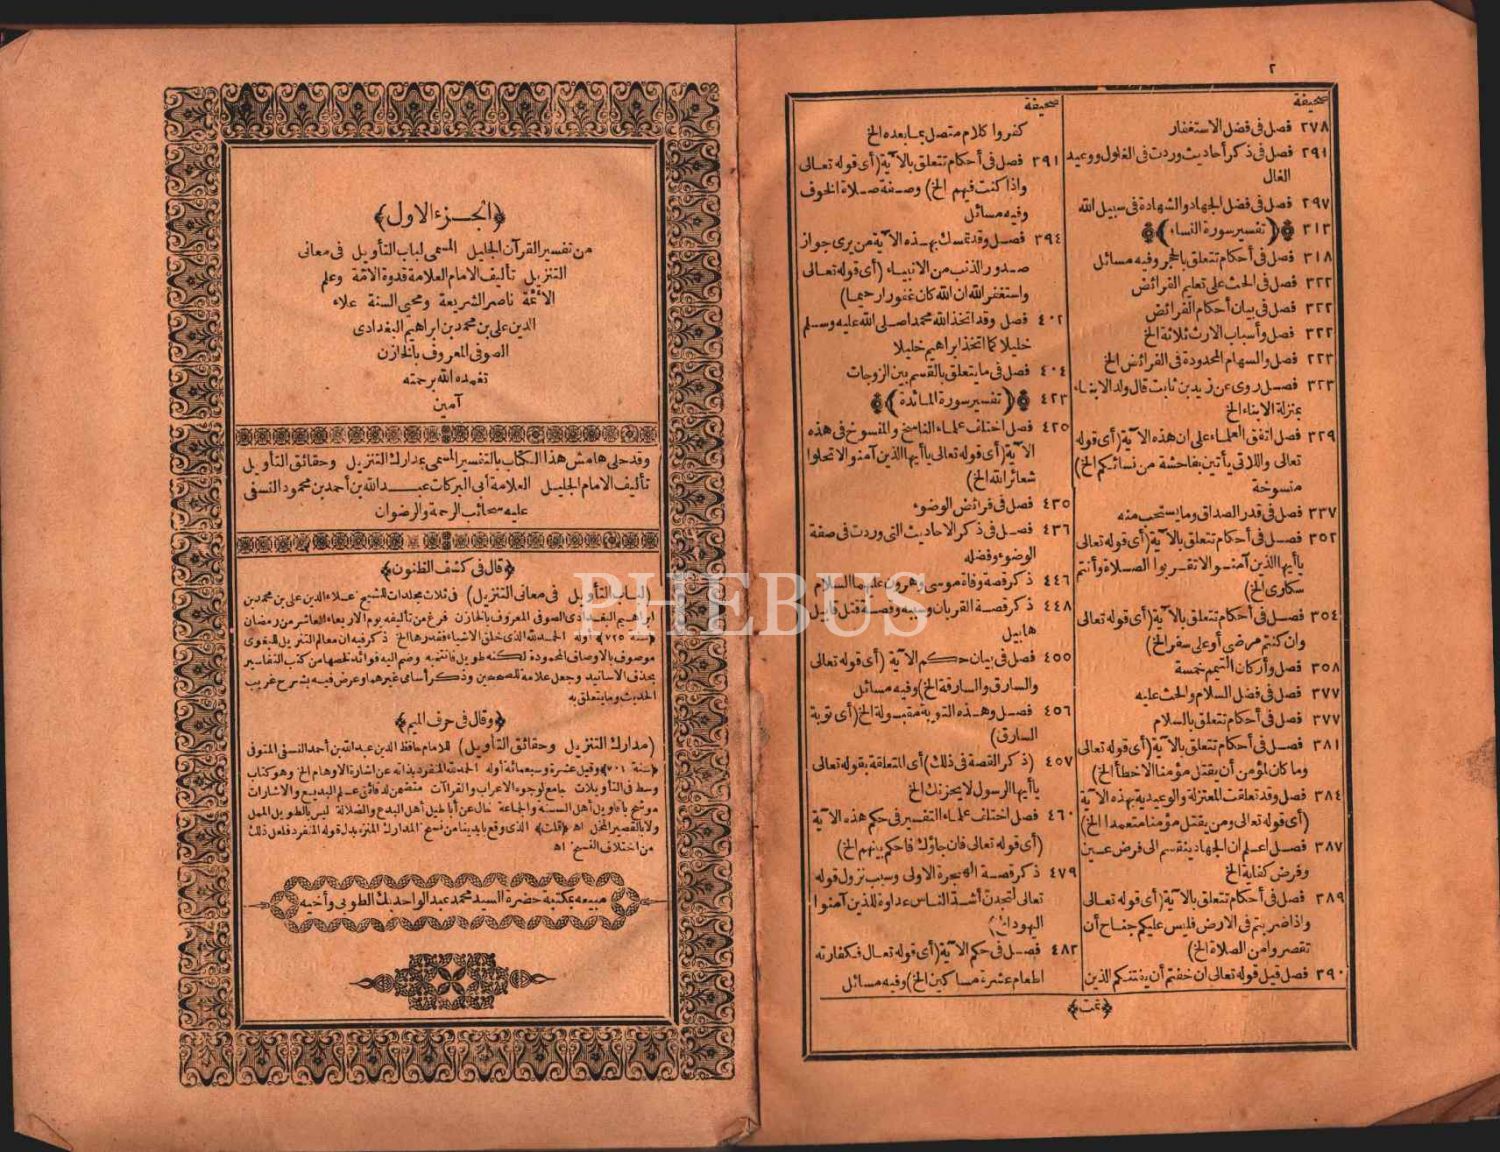 ٢
صحيفة
٢٧٨ فصل فى فضل الاستغفار
٢٩١ فصل فى ذكر أحاديث وردت فى الغلول ووعيد
الغال
٢٩٧ فصل فى فضل الجهاد والشهادة فى سبيل الله
٣١٣ ﴿ تفسير سورة النساء ﴾
٣١٨ فصل فى أحكام تتعلق بالحجر وفيه مسائل
٣٢٢ فصل فى الحث على تعليم الفرائض
٣٢٢ فصل فى بيان أحكام الفرائض
٣٢٢ فصل وأسباب الارث ثلاثة الخ
٢٢٣ فصل والسهام المحدودة فى الفرائض الخ
٣٢٣ فصل روى عن زيد بن ثابت قال ولد الابناء
بمنزلة الابناء الخ
٣٢٩ فصل اتفق العلماء على ان هذه الآية (أى قوله
تعالى واللاتى يأتين بفاحشة من نسائكم الخ)
منسوخة
٣٣٧ فصل فى قدر الصداق وما يستحب منه
٣٥٢ فصل فى أحكام تتعلق بالآية (أى قوله تعالى
يا أيها الذين آمنوا لا تقربوا الصلاة وأنتم
سكارى الخ)
٣٥٤ فصل فى أحكام تتعلق بالآية (أى قوله تعالى
وان كنتم مرضى أو على سفر الخ)
٣٥٨ فصل وأركان التيمم خمسة
٣٧٧ فصل فى فضل السلام والحث عليه
٣٧٧ فصل فى أحكام تتعلق بالسلام
٣٨١ فصل فى أحكام تتعلق بالآية (أى قوله تعالى
وما كان لمؤمن أن يقتل مؤمنا الا خطأ الخ)
٣٨٤ فصل وقد تعلقت المعتزلة والوعيدية بهذه الآية
(أى قوله تعالى ومن يقتل مؤمنا متعمدا الخ)
٣٨٧ فصل اعلم ان الجهاد ينقسم الى فرض عين
وفرض كفاية الخ
٣٨٩ فصل فى أحكام تتعلق بالآية (أى قوله تعالى
واذا ضربتم فى الارض فليس عليكم جناح أن
تقصروا من الصلاة الخ)
٣٩٠ فصل قيل قوله تعالى ان خفتم أن يفتنكم الذين
صحيفة
كفروا كلام متصل بما بعده الخ
٣٩١ فصل فى أحكام تتعلق بالآية (أى قوله تعالى
واذا كنت فيهم الخ) وصفة صلاة الخوف
وفيه مسائل
٣٩٤ فصل وقد تمسك بهذه الآية من يرى جواز
صدور الذنب من الانبياء (أى قوله تعالى
واستغفر الله ان الله كان غفورا رحيما)
٤٠٢ فصل وقد اتخذ الله محمدا صلى الله عليه وسلم
خليلا كما اتخذ ابراهيم خليلا
٤٠٤ فصل فى ما يتعلق بالقسم بين الزوجات
٤٢٣ ﴿ تفسير سورة المائدة ﴾
٤٢٥ فصل اختلف علماء الناسخ والمنسوخ فى هذه
الآية (أى قوله تعالى يا أيها الذين آمنوا لا تحلوا
شعائر الله الخ)
٤٣٥ فصل فى فرائض الوضوء
٤٣٦ فصل فى ذكر الاحاديث التى وردت فى صفة
الوضوء وفضله
٤٤٦ ذكر قصة وفاة موسى وهرون عليهما السلام
٤٤٨ ذكر قصة القربان وسببه وقصة قتل قابيل
هابيل
٤٥٥ فصل فى بيان حكم الآية (أى قوله تعالى
والسارق والسارقة الخ) وفيه مسائل
٤٥٦ فصل وهذه التوبة مقبولة الخ (أى توبة
السارق)
٤٥٧ (ذكر القصة فى ذلك) أى المتعلقة بقوله تعالى
يا أيها الرسول لا يحزنك الخ
٤٦٠ فصل اختلف علماء التفسير فى حكم هذه الآية
(أى قوله تعالى فان جاؤك فاحكم بينهم الخ)
٤٧٩ ذكر قصة الهجرة الاولى وسبب نزول قوله
تعالى لتجدن أشد الناس عداوة للذين آمنوا
اليهود الخ)
٤٨٣ فصل فى حكم الآية (أى قوله تعالى فكفارته
اطعام عشرة مساكين الخ) وفيه مسائل
﴿تمت﴾
﴿الجزء الاول﴾
من تفسير القرآن الجليل المسمى لباب التأويل فى معانى
التنزيل تأليف الامام العلامة قدوة الامة وعلم
الأئمة ناصر الشريعة ومحيى السنة علاء
الدين على بن محمد بن ابراهيم البغدادى
الصوفى المعروف بالخازن
تغمده الله برحمته
آمين
وقد حلى هامش هذا الكتاب بالتفسير المسمى بمدارك التنزيل وحقائق التأويل
تأليف الامام الجليل العلامة أبى البركات عبد الله بن أحمد بن محمود النسفى
عليه سحائب الرحمة والرضوان
﴿قال فى كشف الظنون﴾
(لباب التأويل فى معانى التنزيل) فى ثلاث مجلدات للشيخ علاء الدين على بن محمد بن
ابراهيم البغدادى الصوفى المعروف بالخازن فرغ من تأليفه يوم الاربعاء العاشر من رمضان
سنة ٧٢٥ أوله الحمد لله الذى خلق الاشياء فقدرها الخ ذكر فيه ان معالم التنزيل للبغوى
موصوف بالاوصاف المحمودة لكنه طويل فانتخبه وضم اليه فوائد لخصها من كتب التفاسير
بحذف الاسانيد وجعل علامة للصحيحين وذكر أسامى غيرهما وعرض فيه بشرح غريب
الحديث وما يتعلق به
﴿وقال فى حرف الميم﴾
(مدارك التنزيل وحقائق التأويل) للامام حافظ الدين عبد الله بن أحمد النسفى المتوفى
﴿سنة ٧٠١﴾ وقيل عشرة وسبعمائة أوله الحمد لله المنفرد بذاته عن اشارة الاوهام الخ وهو كتاب
وسط فى التأويلات جامع لوجوه الاعراب والقراآت متضمن لدقائق علم البديع والاشارات
موشح بأقاويل أهل السنة والجماعة خال عن أباطيل أهل البدع والضلالة ليس بالطويل الممل
ولا بالقصير المخل اه ﴿قلت﴾ الذى وقع بايدينا من نسخ المدارك المنزه بدل قوله المنفرد فلعل ذلك
من اختلاف النسخ اه
مبيعه بمكتبة حضرة السيد محمد عبد الواحد بك الطوبى وأخيه
PHEBUS